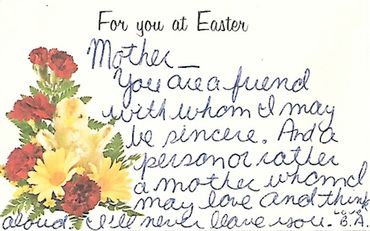 For you at Easter
Mother –
You are a friend
with whom I may
be sincere. And a
person or rather
a mother whom I
may love and think
aloud. I'll never leave you. love
B.A.